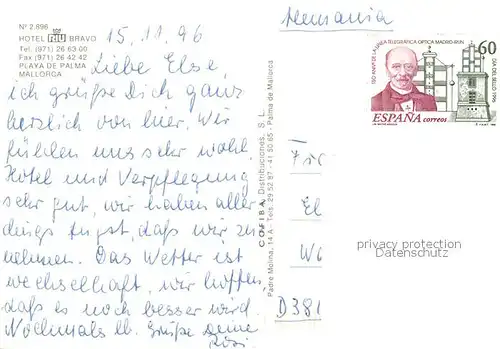 Nº 2.896
HOTEL RIU BRAVO
Tel. (971) 26 63 00
Fax (971) 26 42 42
PLAYA DE PALMA
MALLORCA
15. 11. 96
Liebe Else,
ich grüße Dich ganz
herzlich von hier. Wir
fühlen uns sehr wohl
Hotel und Verpflegung
sehr gut, wir haben aller
dings Angst, daß wir zu
nehmen. Das Wetter ist
wechselhaft, wir hoffen,
daß es noch besser wird
Nochmals lb. Grüße Deine
Rosi
COFIBA, Distribuciones, S. L.
Padre Molina, 14 A - Tels. 29 52 87 - 41 50 65 - Palma de Mallorca
Alemania
150 ANIV DE LA LINEA TELEGRAFICA OPTICA MADRID-IRUN
60
DIA DEL SELLO 1996
ESPAÑA correos
Fr
El
Wo
privacy protection
Datenschutz
D381